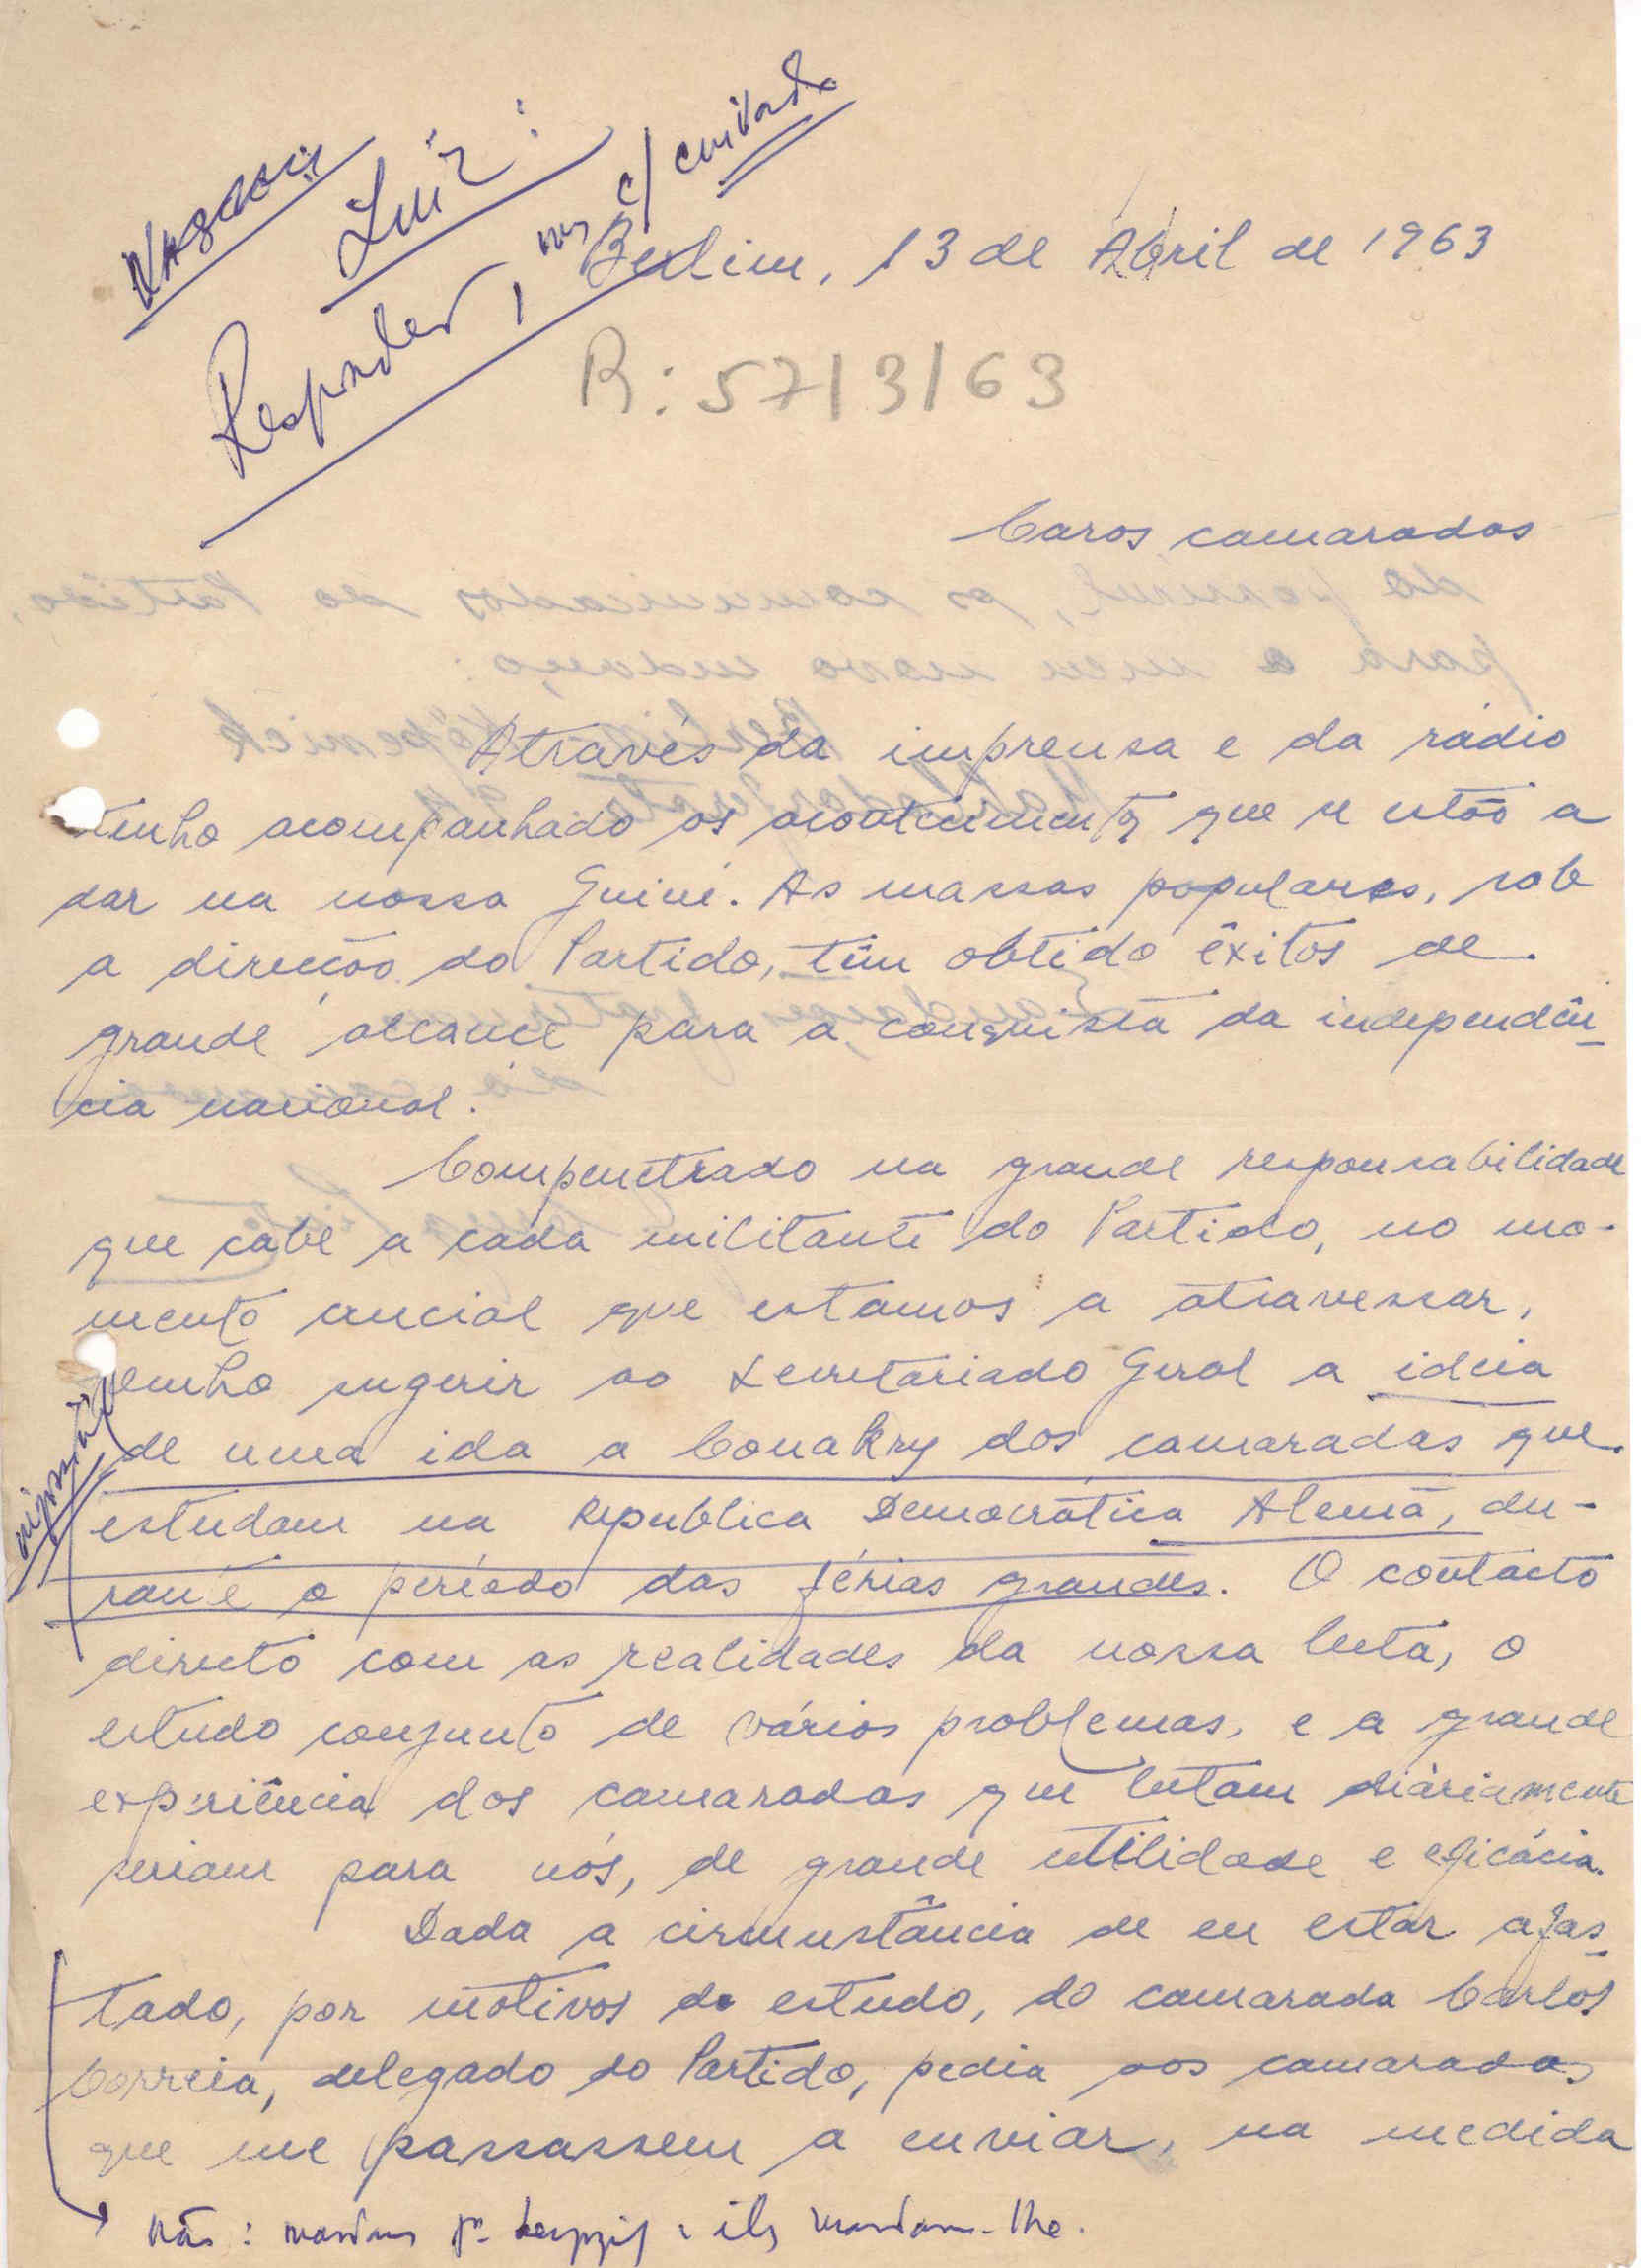 Vasco:
Luiz:
Responder, mas c/ cuidado
Berlim, 13 de Abril de 1963
R: 57/3/63
Caros camaradas
Através da imprensa e da rádio
tenho acompanhado os acontecimentos que se estão a
dar na nossa Guiné. As massas populares, sob
a direcção do Partido, têm obtido êxitos de
grande alcance para a conquista da independên-
cia nacional.
Compenetrado na grande responsabilidade
que cabe a cada militante do Partido, no mo-
mento crucial que estamos a atravessar,
venho sugerir ao Secretariado Geral a ideia
de uma ida a Conakry dos camaradas que
estudam na Republica Democrática Alemã, du-
rante o período das férias grandes. O contacto
directo com as realidades da nossa luta, o
estudo conjunto de vários problemas, e a grande
experiência dos camaradas que lutam diáriamente
seriam para nós, de grande utilidade e eficácia.
Dada a circunstância de eu estar afas-
tado, por motivos de estudo, do camarada Carlos
Correia, delegado do Partido, pedia aos camaradas
que me passassem a enviar, na medida
Não: mandamos p. Leipzig: eles mandam-lhe.